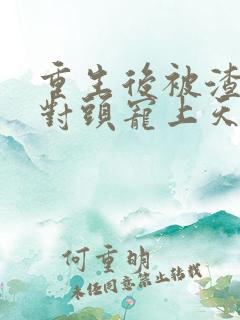 重生後被渣
對頭寵上天
何重明
未經同意禁止轉載